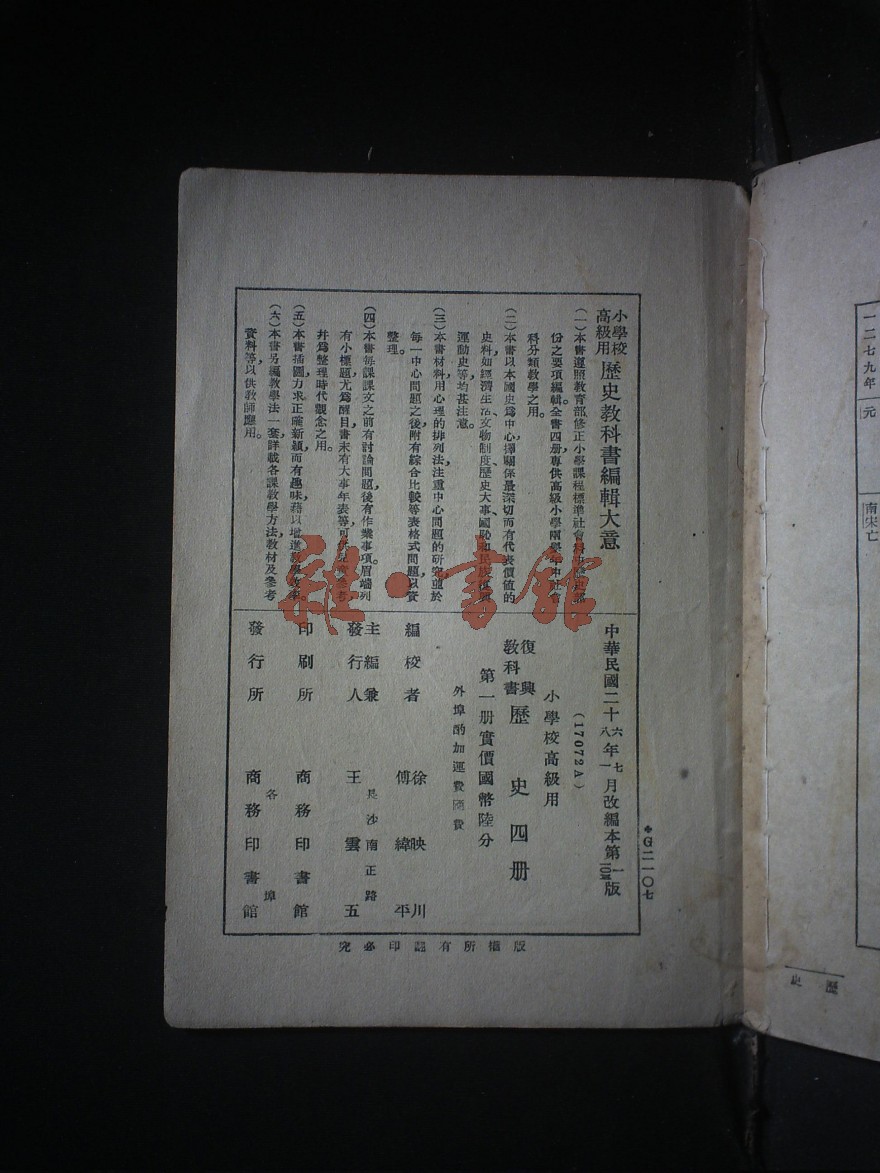 小學校高級用 歷史教科書編輯大意
(一)本書遵照教育部修正小學課程標準社會科
份之要項編輯全書四册專供高級小學兩學年中社會
科分類教學之用。
(二)本書以本國史爲中心擇關係最深切而有代表價值的
史料如經濟生活、文物制度、歷史大事、國恥和民族
運動史等均甚注意。
(三)本書材料用心理的排列法注重中心問題的研究並於
每一中心問題之後附有綜合比較等表格式問題以資
整理。
(四)本書每課課文之前有討論問題後有作業事項眉端列
有小標題尤爲醒目書末有大事年表等可供兒童參考
幷爲整理時代觀念之用。
(五)本書插圖力求正確新穎而有趣味藉以增進教學效率。
(六)本書另編教學法一套詳載各課教學方法教材及參考
資料等,以供教師應用。
中華民國二十六年七月改編本第一版
八 一 10版
(17072A)
小學校高級用
復興教科書 歷史四册
第一册實價國幣陸分
外埠酌加運費匯費
編校者 徐映川
傅緯平
主編兼發行人 王雲五
長沙南正路
印刷所 商務印書館
發行所 商務印書館
各埠
◆G二一〇七
版權所有翻印必究
一二七九年
元
南宋亡
歷史
雜·書館